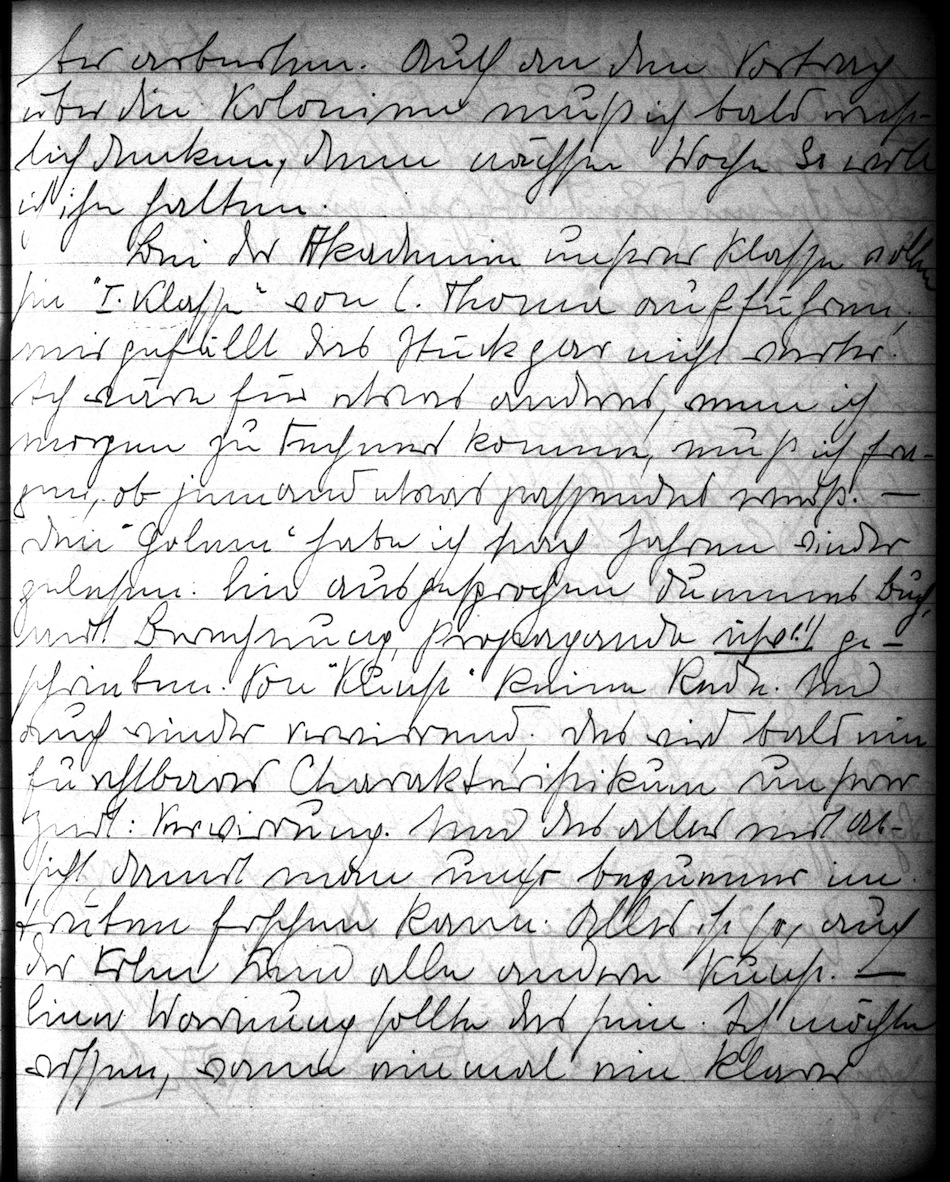 ter arbeiten. Auch an den Vortrag
über die Kolonien muß ich bald ernst-
lich denken, denn nächste Woche so will
ich ihn halten.
Bei der Akademie unserer Klasse sollen
sie "I. Klasse" von L. Thoma aufführen,
mir gefällt das Stück gar nicht weiter.
Ich wäre für etwas anderes, wenn ich
morgen zu komme, muß ich fra-
gen, ob jemand etwas passendes weiß. —
Den "Golem" habe ich nach Jahren wieder
gelesen. Ein ausgesprochen dummes Buch,
mit Berechnung, Propaganda ge-
schrieben. Von "Kunst" keine Rede. Und
auch wieder verwirrend. Das wird bald ein
furchtbares Charakteristikum unserer
Zeit: Verwirrung. Und das alles mit Ab-
sicht, damit man umso bequemer im
trüben fischen kann. Alles ist so, auch
der Film und alle andere Kunst. —
Eine Warnung sollte das sein. Ich möchte
wissen, wann einmal ein klares